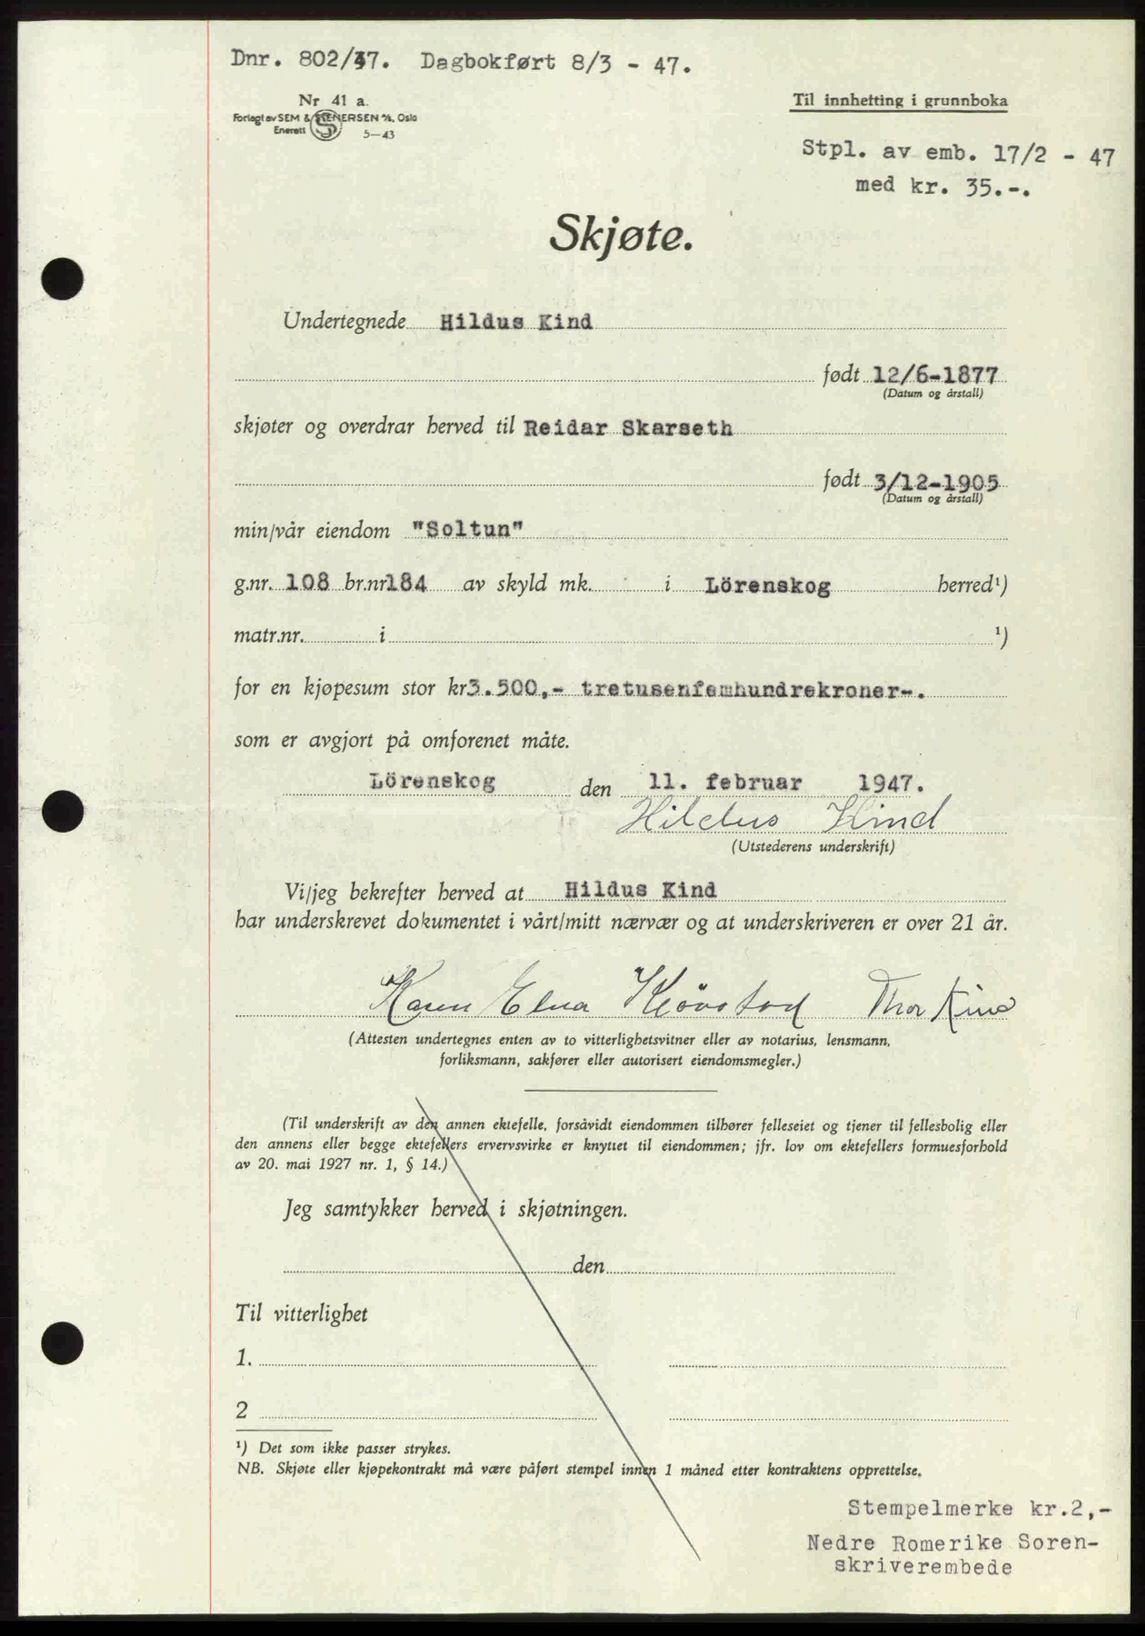 Dnr. 802/47. Dagbokført 8/3 - 47.
Nr 41 a.
Forlagt av SEM & STENERSEN A/S, Oslo
Enerett S 5—43
Til innhetting i grunnboka
Stpl. av emb. 17/2 - 47
med kr. 35.-.
Skjøte.
Undertegnede Hildus Kind
født 12/6-1877
(Datum og årstall)
skjøter og overdrar herved til Reidar Skarseth
født 3/12-1905
(Datum og årstall)
min/vår eiendom "Soltun"
g.nr. 108 br.nr 184 av skyld mk. i Lörenskog herred¹)
matr.nr. i ¹)
for en kjøpesum stor kr 3.500,- tretusenfemhundrekroner-.
som er avgjort på omforenet måte.
Lörenskog den 11. februar 1947.
Hildus Kind
(Utstederens underskrift)
Vi/jeg bekrefter herved at Hildus Kind
har underskrevet dokumentet i vårt/mitt nærvær og at underskriveren er over 21 år.
Karen Elna Thor Kind
(Attesten undertegnes enten av to vitterlighetsvitner eller av notarius, lensmann,
forliksmann, sakfører eller autorisert eiendomsmegler.)
(Til underskrift av den annen ektefelle, forsåvidt eiendommen tilhører felleseiet og tjener til fellesbolig eller
den annens eller begge ektefellers ervervsvirke er knyttet til eiendommen; jfr. lov om ektefellers formuesforhold
av 20. mai 1927 nr. 1, § 14.)
Jeg samtykker herved i skjøtningen.
den
Til vitterlighet
1.
2
¹) Det som ikke passer strykes.
NB. Skjøte eller kjøpekontrakt må være påført stempel innen 1 måned etter kontraktens opprettelse.
Stempelmerke kr.2,-
Nedre Romerike Soren-
skriverembede